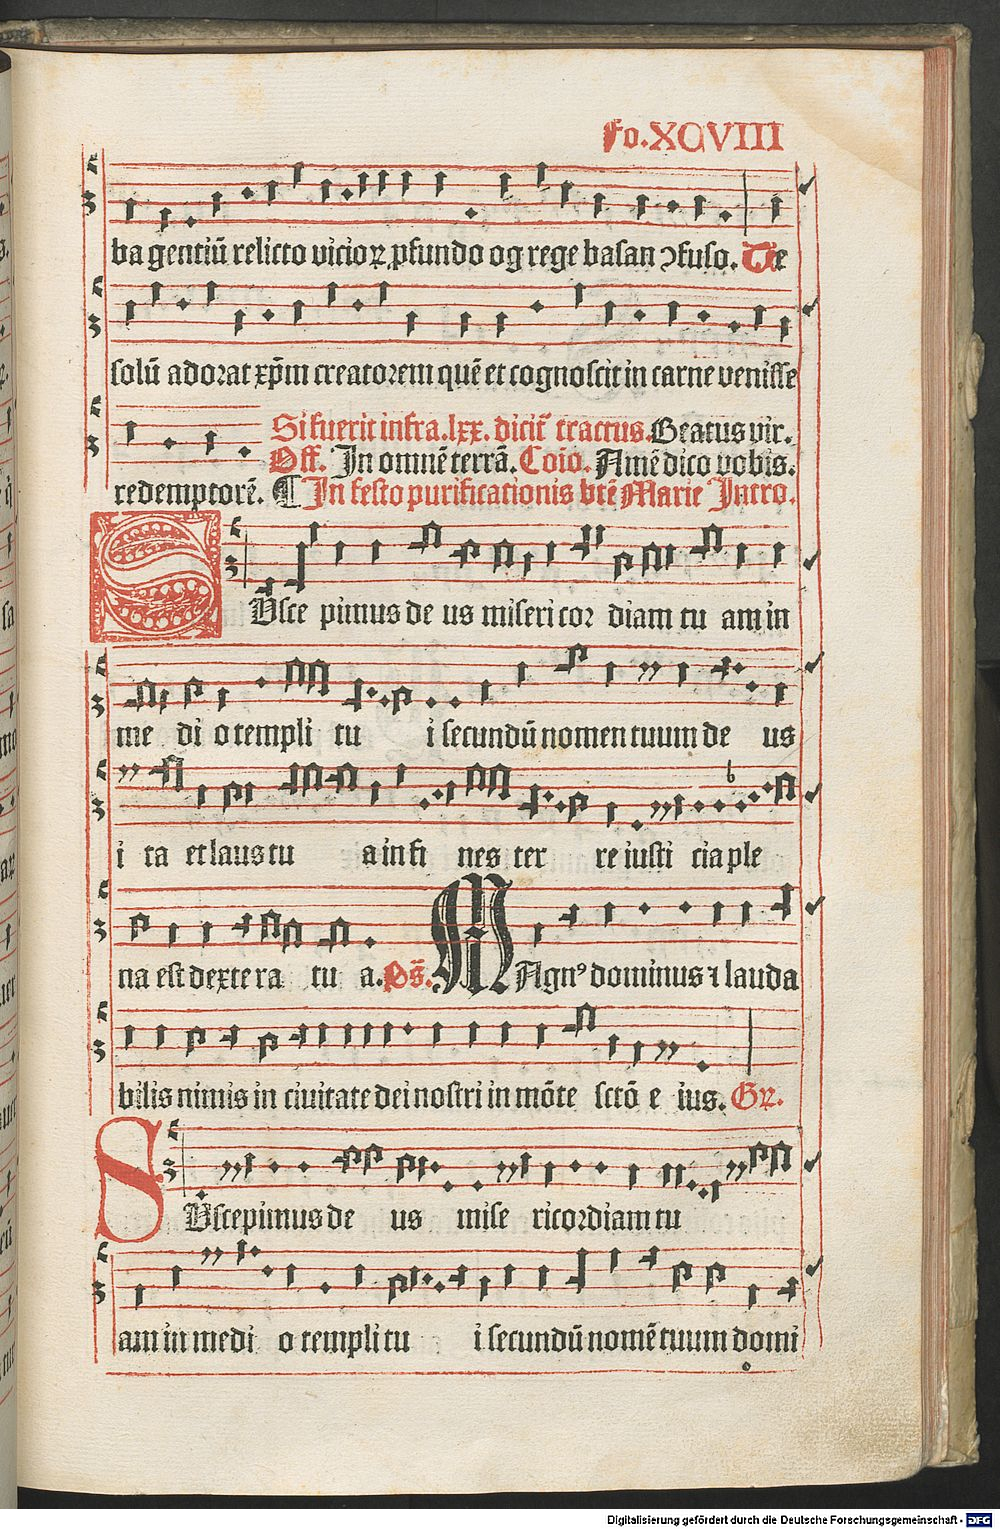 Fo.XCVIII
ba gentiū relicto vicioꝝ ꝓfundo og rege basan ↄfuso. Te
solū adorat xp̄m creatorem quē et cognoscit in carne venisse
Si fuerit infra .lxx. dicit̄ tractus. Beatus vir.
Off. In omnē terrā. Cōio. Amē dico vobis.
redemptorē. ¶ In festo purificationis btē Marie Intro.
SUsce pimus de us miseri cor diam tu am in
me di o templi tu i secundū nomen tuum de us
i ta et laus tu a in fi nes ter re iusti cia ple
na est dexte ra tu a. Ps̄. MAgnꝰ dominus ⁊ lauda
bilis nimis in ciuitate dei nostri in mōte sctō e ius. Gꝝ.
SUscepimus de us mise ricordiam tu
am in medi o templi tu i secundū nomē tuum domi
Digitalisierung gefördert durch die Deutsche Forschungsgemeinschaft - DFG